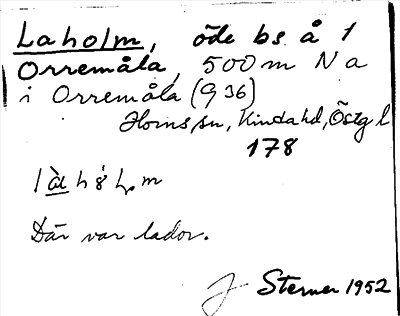 Laholm, öde bs å 1
Orremåla, 500 m N a
i Orremåla (G 36)
Horns sn, Kinda hd, Östg l
178
Där var lador.
J Sterner 1952